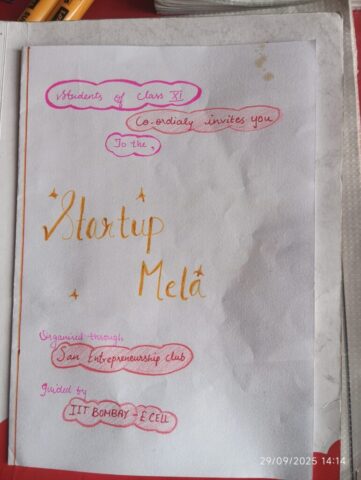 Students of Class XI
Co-ordialy invites you
To the,
Startup
Mela
Organised through
San Entrepreneurship club
Guided by
IIT BOMBAY - E CELL
29/09/2025 14:14